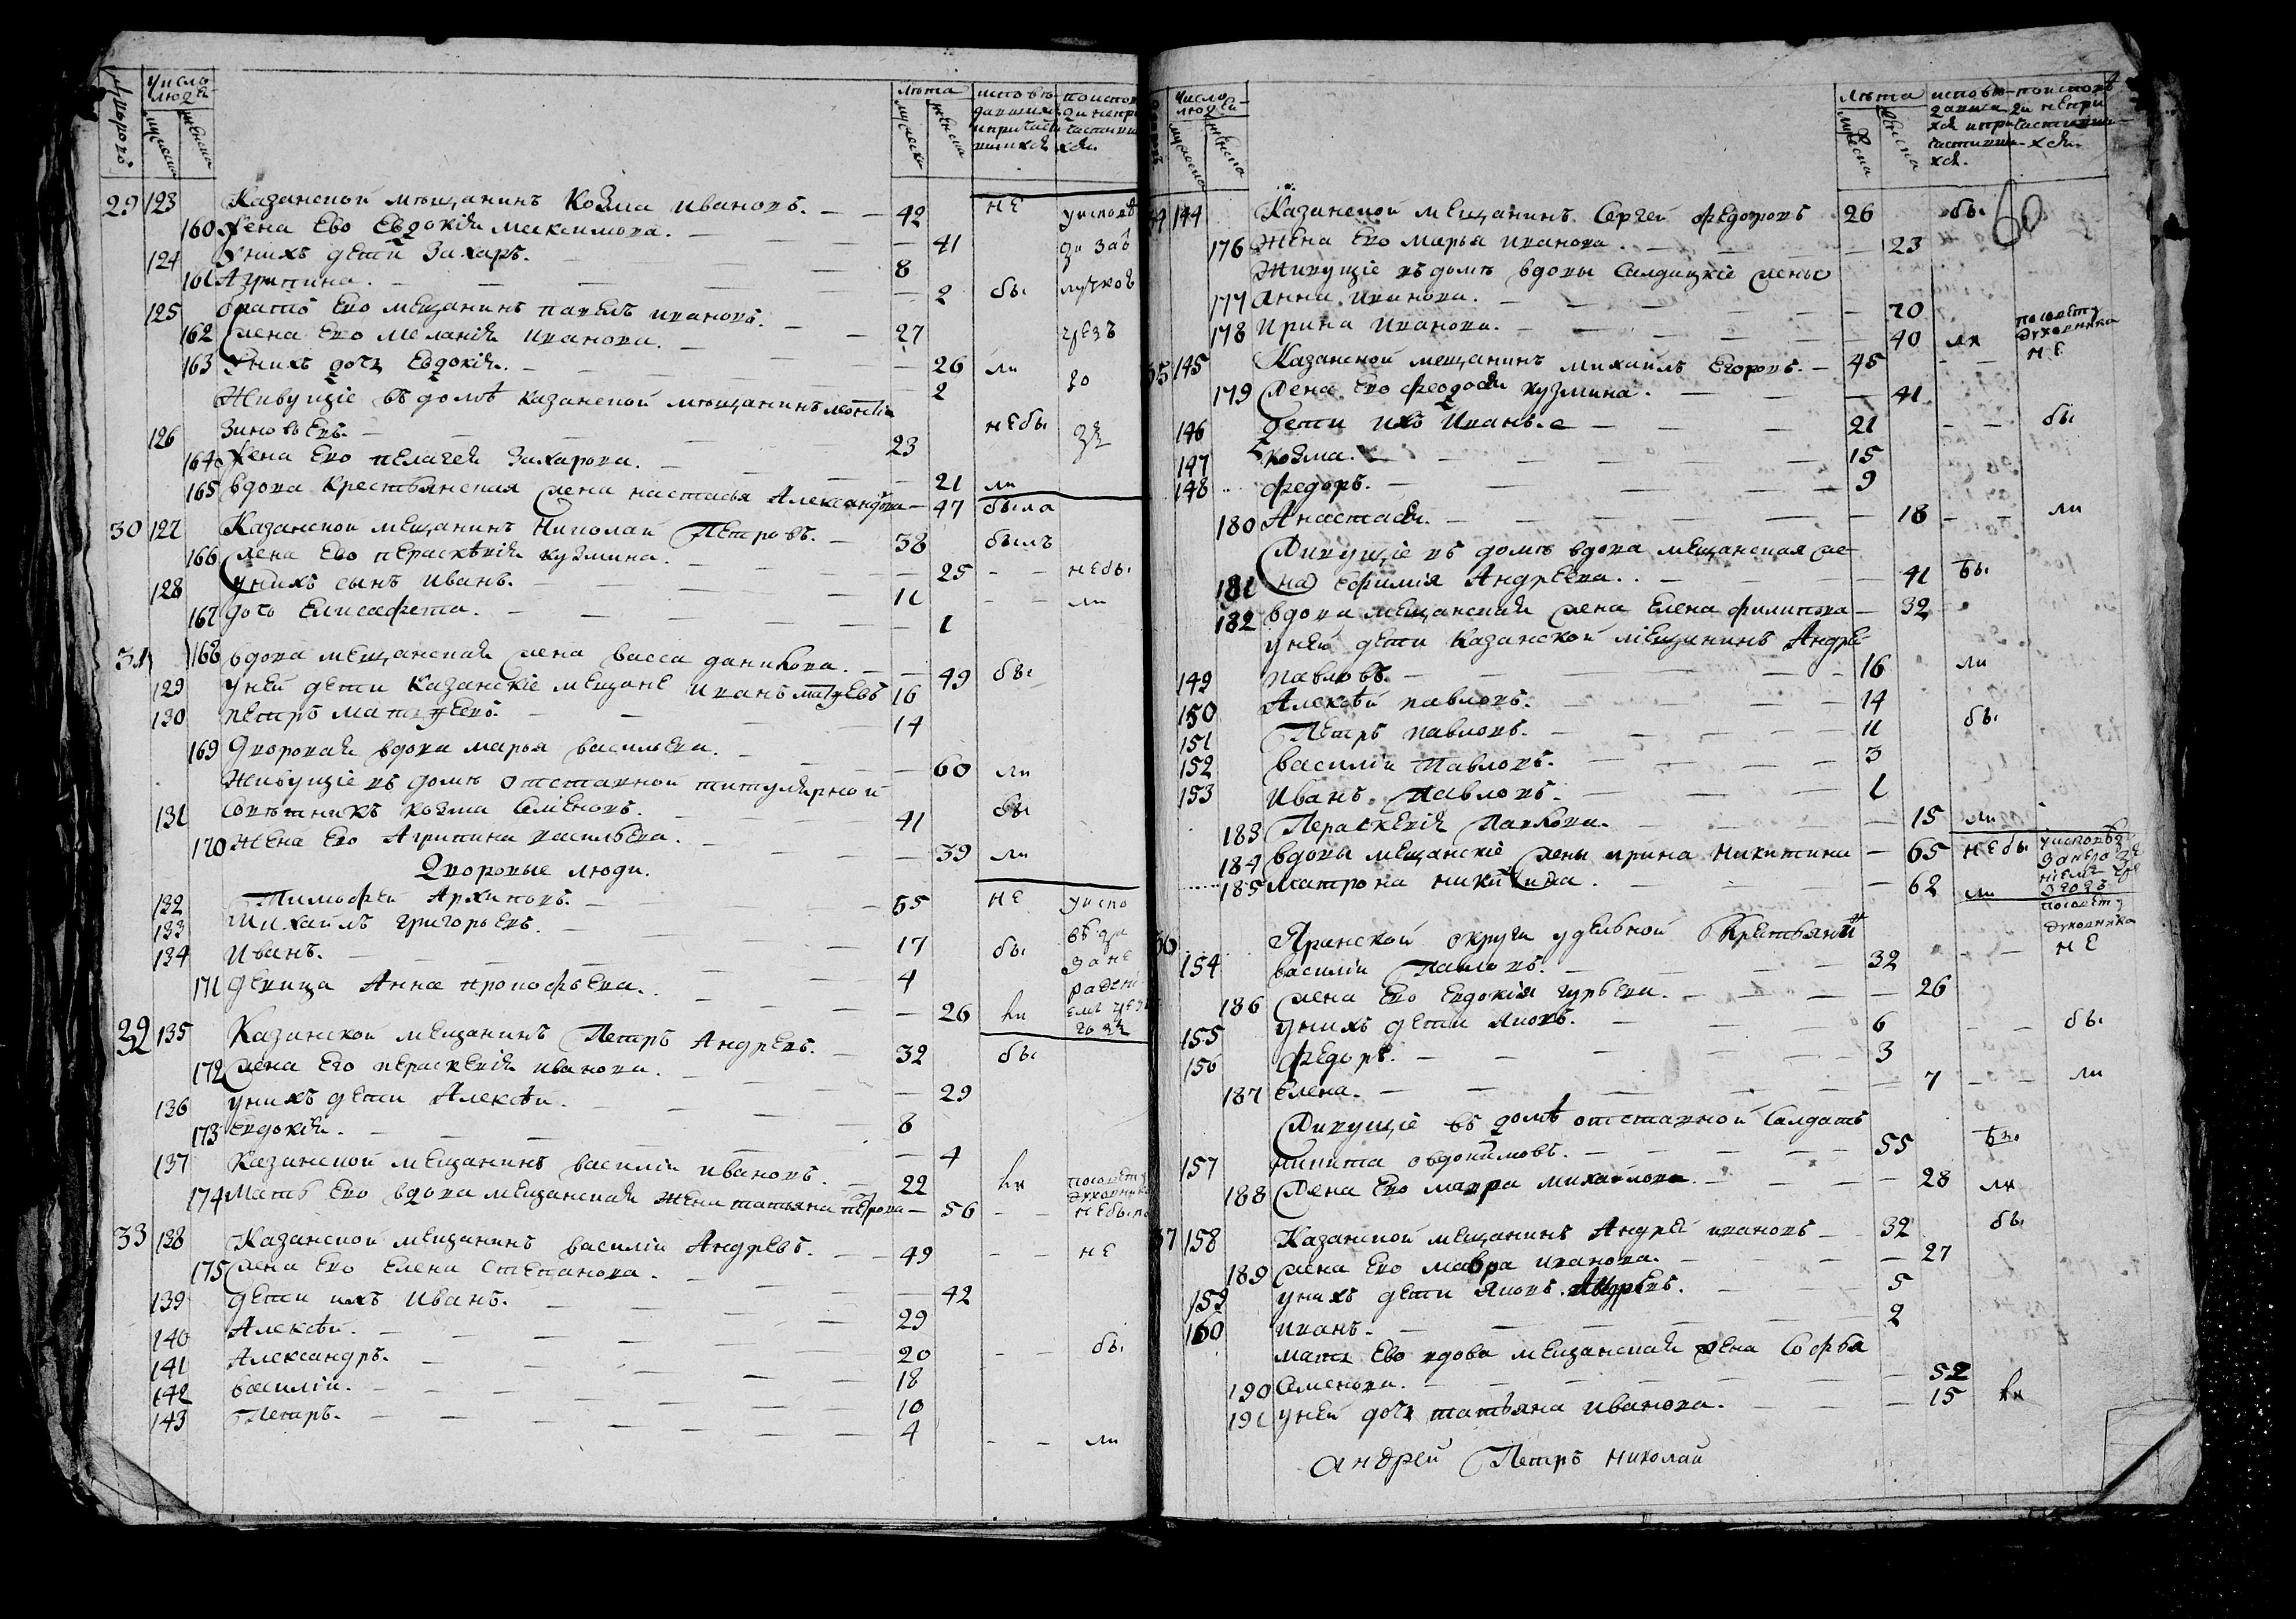 Число людей
Лѣта
мужеска
женска
29 123 Казанской мѣщанинъ Козма Ивановъ. 42 не
160 Жена Ево Евдокія Максимова. 41
124 У нихъ дети Захаръ. 8
161 Агрипина. 2 бы
125 братъ Ево мещанинъ павелъ ивановъ. 27
162 Жена Ево Меланія Иванова. 26 ли
163 У нихъ дочь Евдокія. 2
Живущіе въ домѣ казанской мѣщанинъ леонтіи
126 Зиновьевъ. 23 небы
164 Жена Ево пелагея Захарова. 21 ли
165 вдова крестьянская жена настасья Александрова 47 была
30 127 Казанской мещанинъ Николай Петровъ. 38 былъ
166 жена Ево перасковія кузмина. 25 небы
128 у нихъ сынъ Иванъ. 11 ли
167 дочь Елисафета. 1
31 168 вдова мещанская жена васса данилова. 49 бы
129 у ней дети Казанскіе мещане иванъ матвеевъ 16
130 петръ матвеевъ. 14
169 Дворовая вдова марья васильева. 60 ли
Живущіе въ домѣ отставной титулярной
131 совѣтникъ козма Семеновъ. 41 бы
170 Жена Ево Агрипина васильева. 39 ли
Дворовые люди.
132 Тимофей Архиповъ. 55 не
133 Михайлъ григорьевъ. 17
134 Иванъ. 4 бы
171 девица Анна прокофьева. 26 ли
32 135 Казанской мещанинъ Петръ Андреевъ. 32 бы
172 жена Его перасковія иванова. 29
136 у нихъ дети Алексѣи. 8
173 Евдокія. 4
137 Казанской мещанинъ василіи ивановъ. 22 ли
174 Мать Ево вдова мещанская жена татьяна петрова 56 небыла
33 138 Казанской мещанинъ василіи Андреевъ. 49 не
175 жена Ево Елена Степанова. 42
139 дети ихъ иванъ. 29
140 Алексѣи. 20 бы
141 Александръ. 18
142 василіи. 10
143 Петръ. 4 ли
60
34 144 Казанской мещанинъ Сергей федоровъ 26 бы
176 Жена Ево марья иванова. 23
Живущіе въ домѣ вдовы Салдацкіе жены
177 Анна иванова. 70
178 Ирина Иванова. 40 ли
35 145 Казанской мещанинъ михаилъ Егоровъ. 45 посовету духовника не
179 жена Ево феодосья кузмина. 41
146 дети ихъ Иванъ. 21 бы
147 козма. 15
148 федоръ. 9
180 Анастасія. 18 ли
Живущіе въ домѣ вдова мещанская же
181 на Ефимія Андреева. 41 бы
182 вдова мещанская жена Елена филипова 32
у ней дети казанской мещанинъ Андрей
149 павловъ. 16 ли
150 Алексѣй павловъ. 14
151 Петръ павловъ. 11 бы
152 василіи Павловъ. 3
153 Иванъ Павловъ. 1
183 Перасковія Павлова. 15 ли
184 вдовы мещанскіе жены ирина Никитина 65 небы
185 Матрона никитина. 62 ли
36 Яранской округи удельной крестьянинъ посовету духовника не
154 василіи Павловъ. 32
186 жена Ево Евдокія гурьева. 26
155 у нихъ дети Яковъ. 6 бы
156 федоръ. 3
187 Елена. 7 ли
Живущіе въ домѣ отставной Салдатъ
157 никита овдокимовъ. 55 бы
188 Жена Ево мавра михайлова. 28 ли
37 158 Казанской мещанинъ Андрей ивановъ 32 бы
189 жена Ево мавра иванова. 27
159 у нихъ дети Яковъ Андреевъ. 5
160 иванъ. 2
мать Ево вдова мещанская жена Софья
190 Семенова. 52
191 у ней дочь татьяна иванова. 15 ли
Андрей Петръ Николай